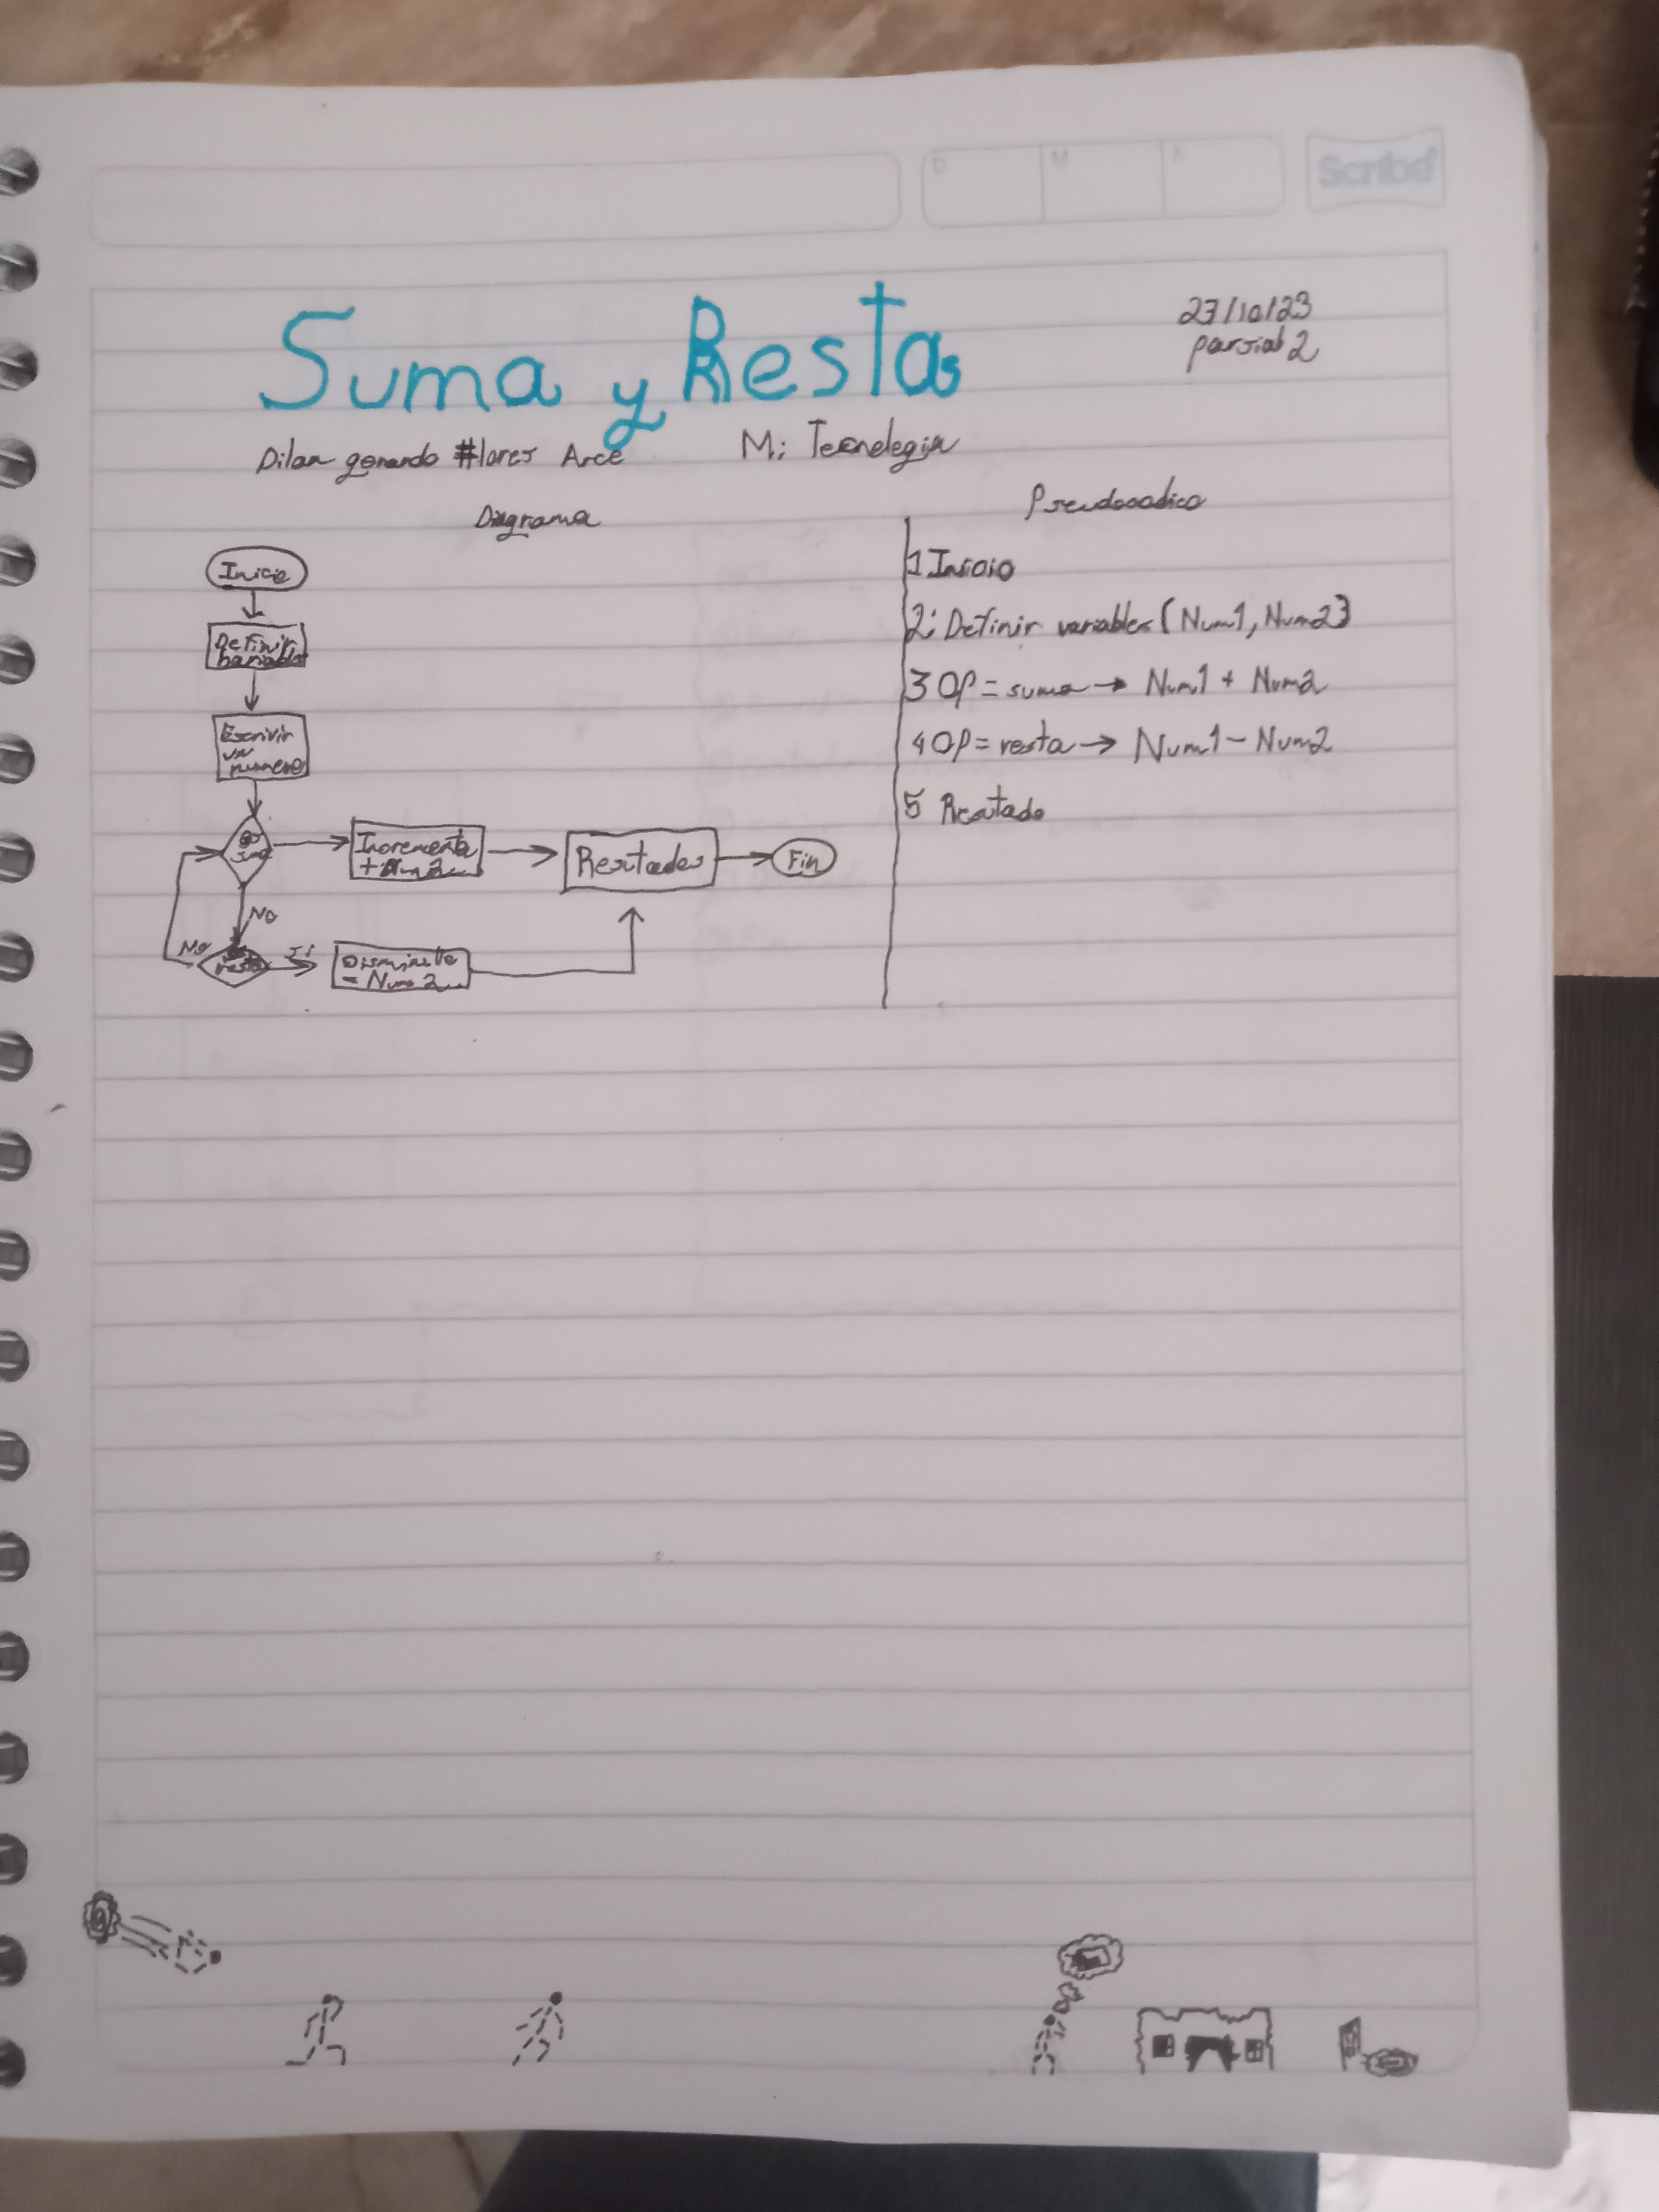 D M A Scribe
23/10/23
parsial 2
Suma y Resta
Dilan Arce M: Tecnelegia
Diagrama
Inicio
Definir
bariables
Escrivir
un
numero
Incrementa
+ Num 2
Resutados
Fin
No
No
resta
si
- Num 2
Pseudocodico
1 Inicio
2: Definir variables (Num1, Num2)
3 OP = suma → Num1 + Num2
4 OP = resta → Num1 - Num2
5 Resutado